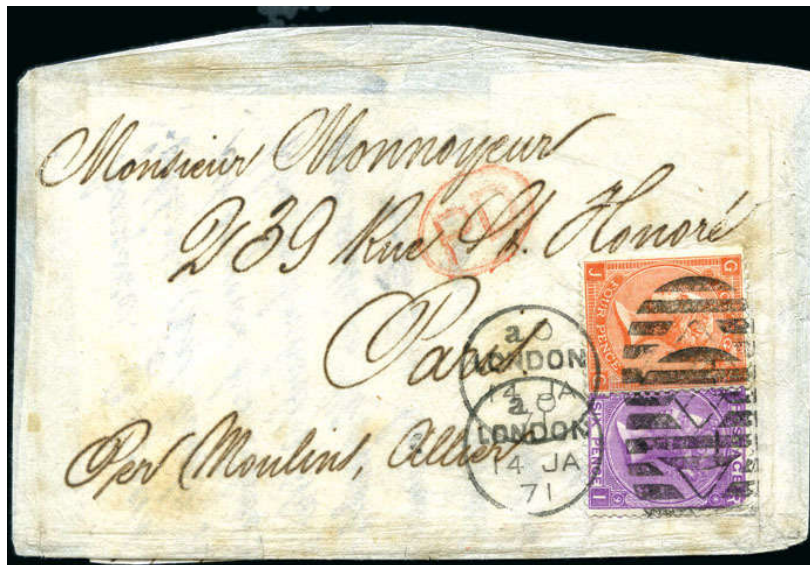 Monsieur Monnoyeur
PD
239 Rue St. Honoré
Paris
Per Moulins, Allier
a
LONDON
14 JA
a
LONDON
14 JA
71
J
G
FOUR PENCE
G
SIX PENCE
I
9